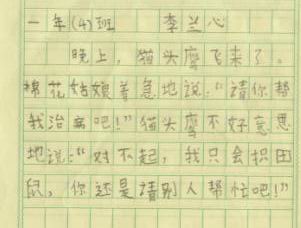 一年(4)班 李兰心
晚上，猫头鹰飞来了。
棉花姑娘着急地说：“请你帮
我治病吧！”猫头鹰不好意思
地说：“对不起，我只会捉田
鼠，你还是请别人帮忙吧！”